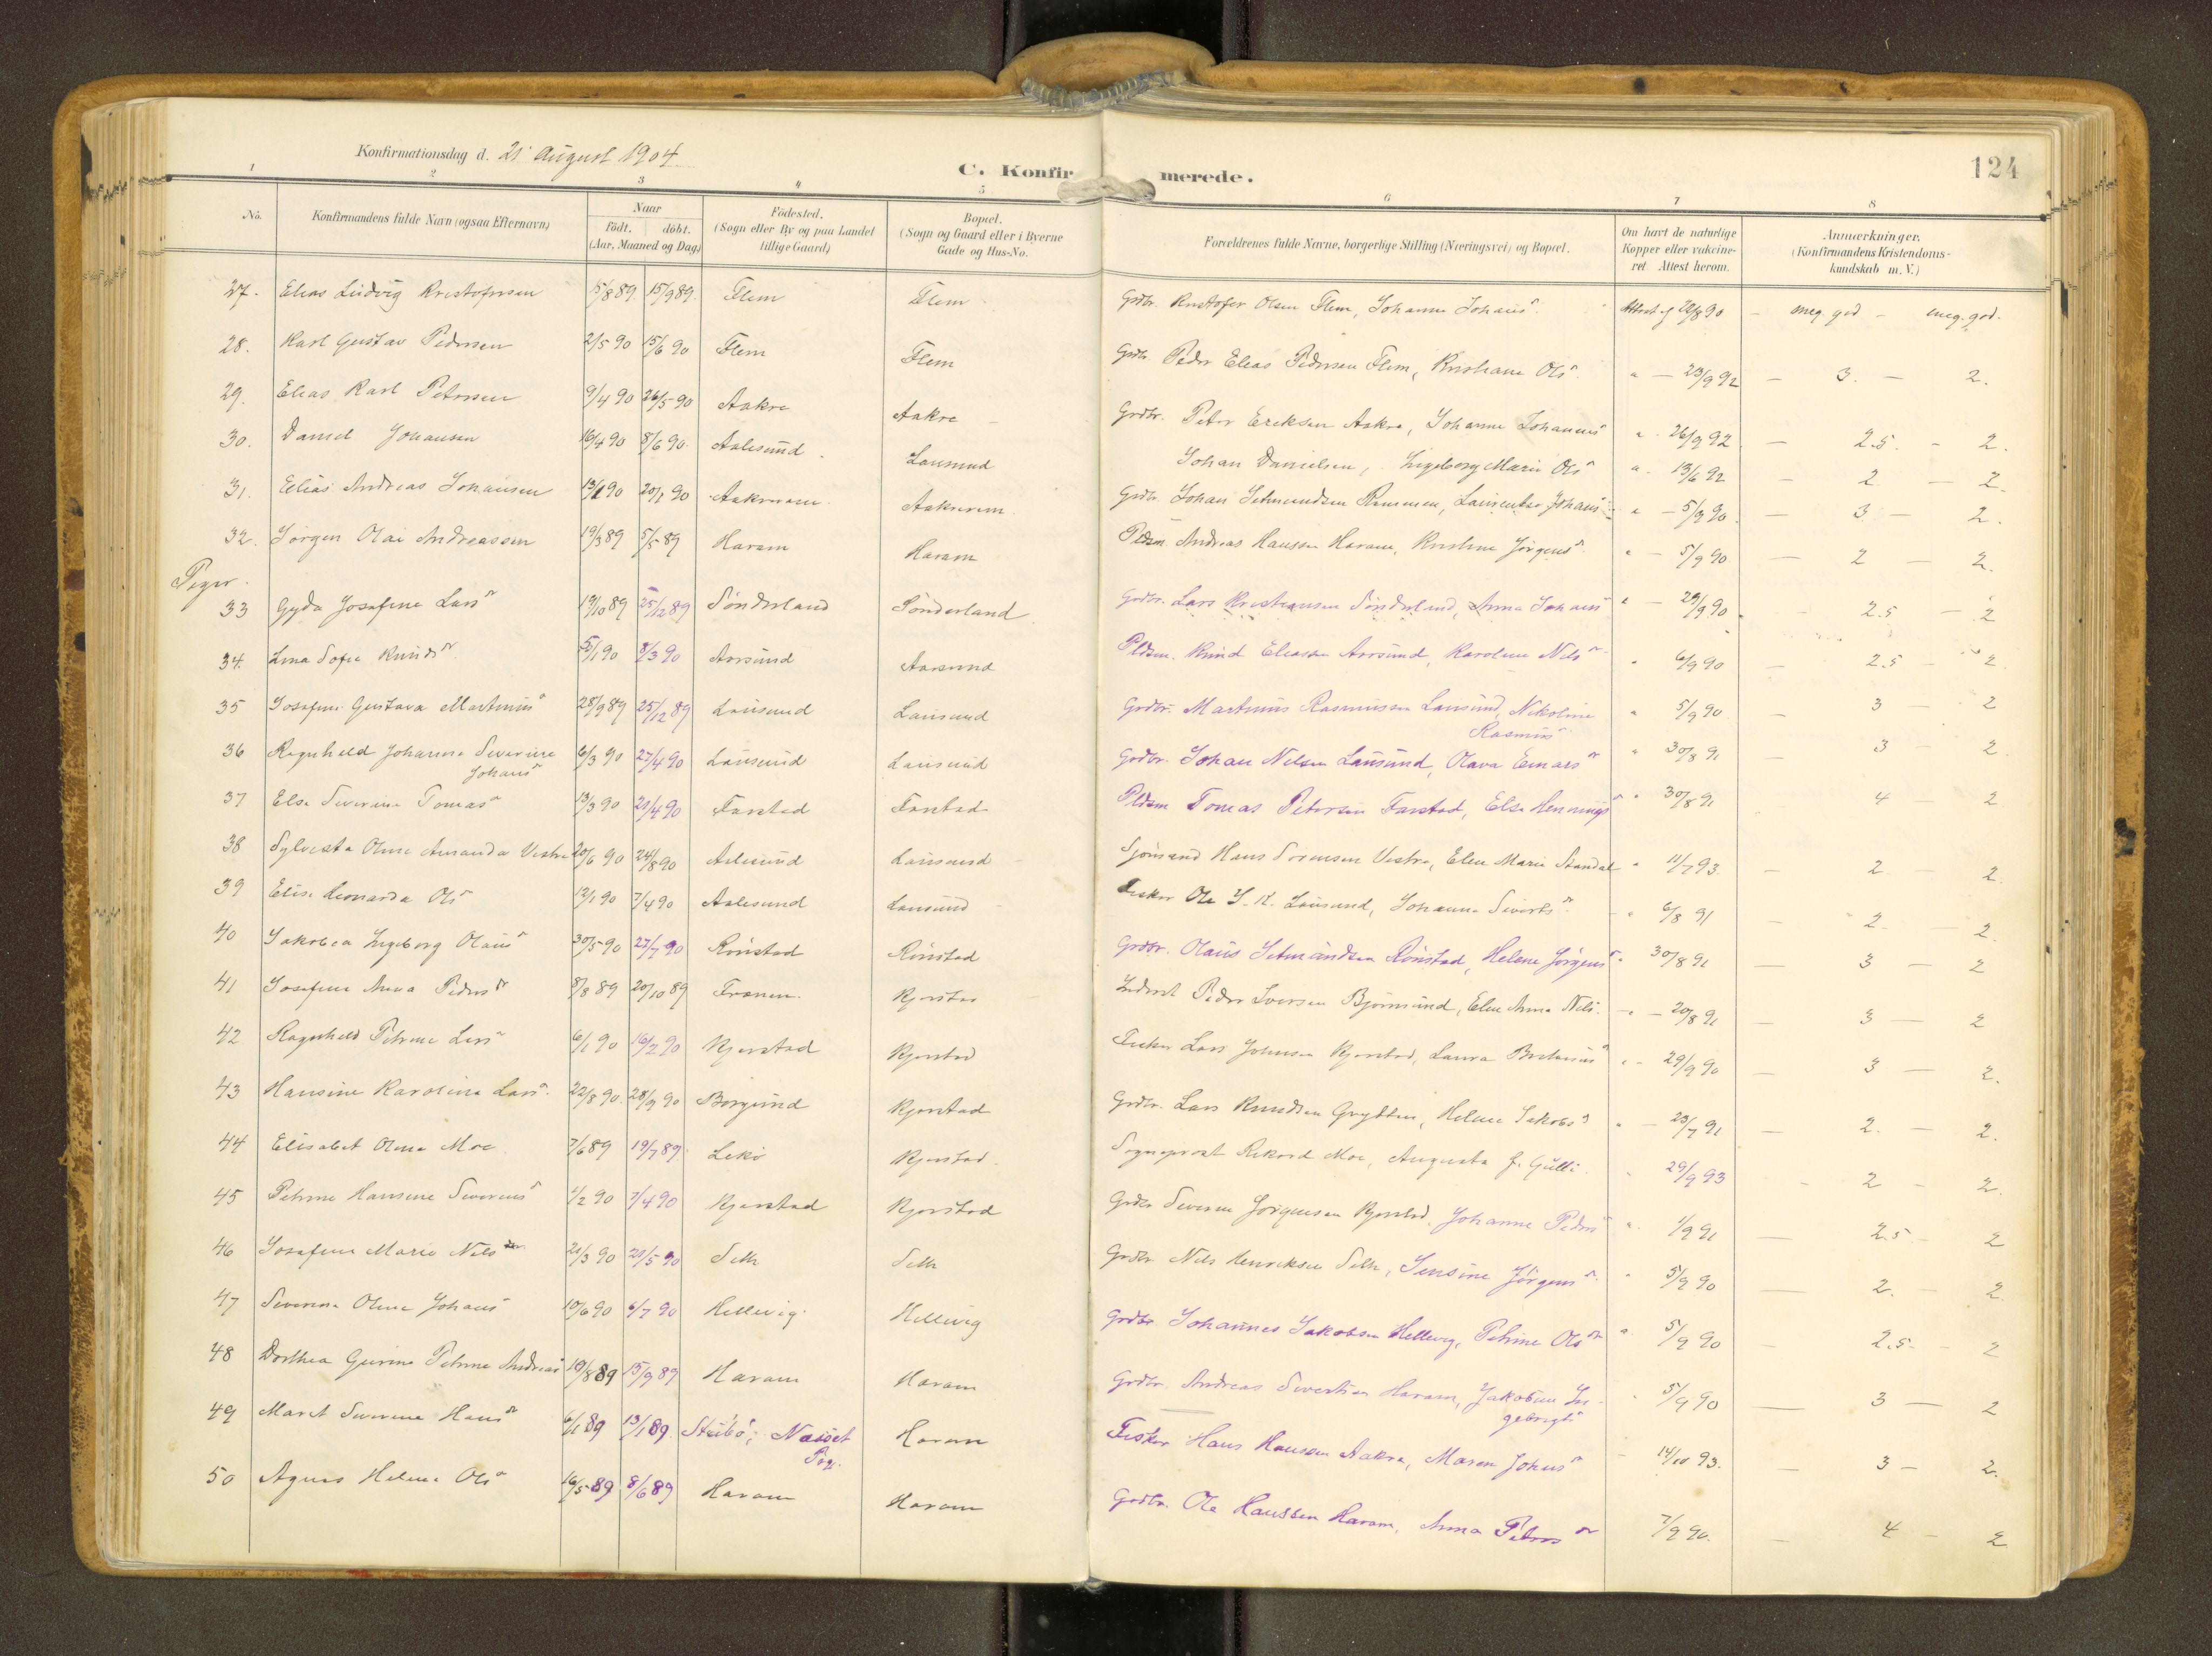 Konfirmationsdag d. 21 August 1904
C. Konfirmerede.
124
1 2 3 4 5 6 7 8
No.
Konfirmandens fulde Navn (ogsaa Efternavn)
Naar
födt. döbt.
(Aar, Maaned og Dag)
Födested.
(Sogn eller By og paa Landet
tillige Gaard)
Bopæl.
(Sogn og Gaard eller i Byerne
Gade og Hus-No.
Forældrenes fulde Navne, borgerlige Stilling (Næringsvei) og Bopæl.
Om havt de naturlige
Kopper eller vakcine-
ret Attest herom.
Anmærkninger.
(Konfirmandens Kristendoms-
kundskab m. V.)
27. Elias Ludvig Kristofersen 5/8 89 15/9 89 Flem Flem Grdbr. Kristofer Olsen Flem, Johanna Johans Attest af 29/8 90 - meg. god - meg. god.
28. Karl Gustav Pedersen 2/5 90 15/6 90 Flem Flem Grdbr. Peder Elias Pedersen Flem, Kristiane Ols " - 23/9 92 - 3. - 2.
29. Elias Karl Petersen 9/4 90 26/5 90 Aakre Aakre Grdbr. Peter Eriksen Aakre, Johanne Johannes " - 26/9 92 - 2.5 - 2.
30. Daniel Johansen 16/4 90 8/6 90 Aalesund Lausund Johan Danielsen, Ingeborg Marie Ols " - 13/6 92 - 2 - 2.
31. Elias Andreas Johansen 13/1 90 20/1 90 Aakrevam Aakrevem Grdbr. Johan Johans " - 5/9 90 - 3 - 2.
32. Jörgen Olai Andreassen 19/3 89 5/5 89 Haram Haram Pldsm. Andreas Hansen Haram, Kristine Jörgens " - 5/9 90 - 2 - 2.
Piger.
33 Gyda Josefine Lars 19/10 89 25/12 89 Sönderland Sönderland Grdbr. Lars Kristiansen Sönderland, Anna Johans " - 29/9 90 - 2.5 - 2
34. Lina Sofie Knuds 5/1 90 8/3 90 Aarsund Aarsund Pldsm. Knud Eliassen Aarsund, Karoline Nils " 6/9 90 - 2.5 - 2
35 Josefine Gustava Martinus 28/9 89 25/12 89 Lausund Lausund Grdbr. Martinus Rasmussen Lausund, Nikoline " 5/9 90 - 3 - 2
Rasmus
36 Ragnhild Johanna Severine 6/3 90 27/4 90 Lausund Lausund Grdbr. Johan Nilsen Lausund, Olava Einars " 30/8 91 - 3 - 2
Johans
37 Else Severine Tomas 13/3 90 20/4 90 Farstad Farstad Pldsm Tomas Petersen Farstad, Else Hennings " 30/8 91 4 2
38 Sylvesta Oline Amanda Vestre 20/6 90 24/8 90 Aalesund Lausund Sjömand Hans Sörensen Vestre, Elen Marie Standal " 11/7 93 - 2 - 2
39 Elise Leonarda Ols 12/1 90 7/4 90 Aalesund Lausund Fisker Ole J. K. Lausund, Johanna Siverts " 6/8 91 - 2 - 2.
40 Jakobea Ingeborg Olaus 30/5 90 27/7 90 Rönstad Rönstad Grdbr. Olaus Rönstad, Helene Jörgens " 30/8 91 - 3 - 2
41 Josefine Anna Peders 8/8 89 20/10 89 Frænen Kjerstad Inderst Peder Iversen Björnsund, Elen Anna Nils - " - 20/8 91 - 3 - 2
42 Ragnhild Petrine Lars 6/1 90 16/2 90 Kjerstad Kjerstad Fisker Lars Johnsen Kjerstad, Laura " - 29/9 90 - 3 - 2.
43 Hansine Karoline Lars 22/8 90 28/9 90 Borgund Kjerstad Grdbr. Lars Knudsen Gryttens, Helene Jakobs " - 23/7 91 - 2. - 2.
44 Elisabet Olena Moe 7/6 89 19/7 89 Lekö Kjerstad Sogneprest Rikard Moe, Augusta f. Gulli " 29/9 93 - 2 - 2.
45 Petrine Hansine Severins 1/2 90 7/4 90 Kjerstad Kjerstad Grdbr. Severin Jörgensen Kjerstad, Johanne Peders " 1/9 91 - 2.5 - 2
46 Josefine Marie Nils 21/3 90 20/5 90 Seth Seth Grdbr. Nils Henriksen Seth, Jensine Jörgens " 5/9 90 - 2. - 2
47 Severine Oline Johans 10/6 90 6/7 90 Hellevig Hellevig Grdbr. Johannes Jakobsen Hellevig, Petrine Ols " 5/9 90 - 2.5 - 2
48 Dorthea Gurine Petrine Andreas 19/8 89 15/9 89 Haram Haram Grdbr. Andreas Sivertsen Haram, Jakobine In- " 5/9 90 - 3 - 2
gebrigts
49 Marit Severine Hans 6/1 89 13/1 89 Stubö; Næsset Haram Fisker Hans Hansen Aakre, Maren Johns - 14/10 93. - 3 - 2.
Pg.
50 Agnes Helene Ols 16/5 89 8/6 89 Haram Haram Grdbr. Ole Hanssen Haram, Anna Peters 7/9 90. - 4 - 2